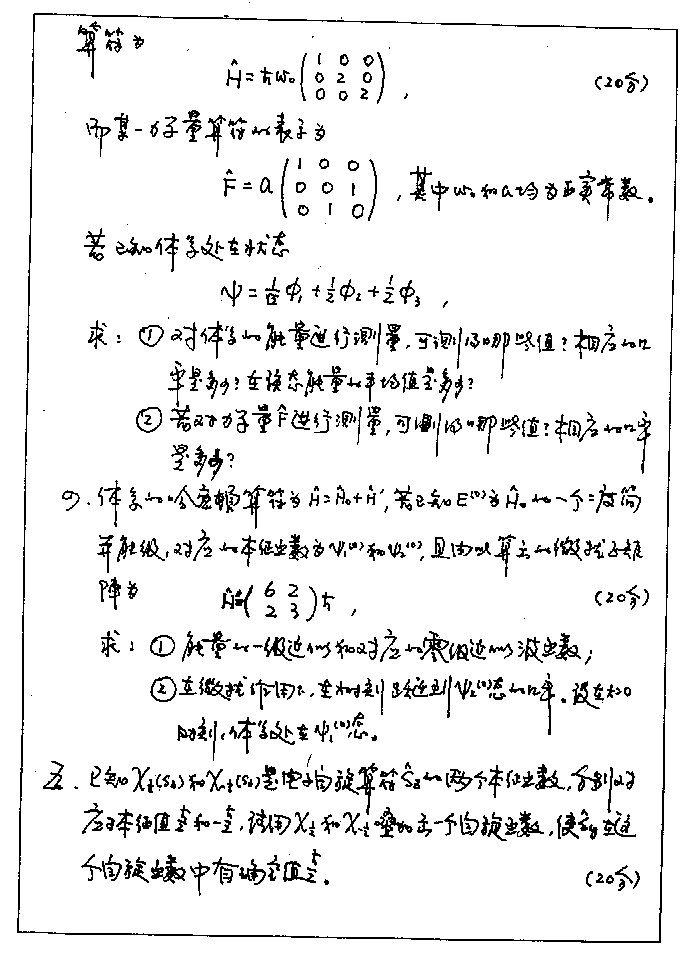 算符为
Ĥ = ħω₀ ( 1 0 0 / 0 2 0 / 0 0 2 ) , (20分)
而某一力学量算符的表示为
F̂ = a ( 1 0 0 / 0 0 1 / 0 1 0 ) , 其中ω₀和a均为正实常数。
若已知体系处在状态
ψ = 1/√2 φ₁ + 1/2 φ₂ + 1/2 φ₃ ,
求: ① 对体系的能量进行测量, 可测得哪些值? 相应的几
率是多少? 在该态能量的平均值是多少?
② 若对力学量F̂进行测量, 可测得哪些值? 相应的几率
是多少?
四. 体系的哈密顿算符为Ĥ=Ĥ₀+Ĥ′, 若已知E⁽⁰⁾为Ĥ₀的一个二度简
并能级, 对应的本征函数为ψ₁⁽⁰⁾和ψ₂⁽⁰⁾, 且由此算出的微扰矩
阵为 Ĥ′=( 6 2 / 2 3 )ħ , (20分)
求: ① 能量的一级近似和对应的零级近似波函数;
② 在微扰作用下, 在t时刻跃迁到ψ₂⁽⁰⁾态的几率。设在t=0
时刻, 体系处在ψ₁⁽⁰⁾态。
五. 已知χ½(s_z)和χ-½(s_z)是电子自旋算符Ŝ_z的两个本征函数, 分别对
应于本征值ħ/2和-ħ/2, 试用χ½和χ-½叠加出一个自旋函数, 使Ŝ_y在这
个自旋函数中有确定值ħ/2。 (20分)